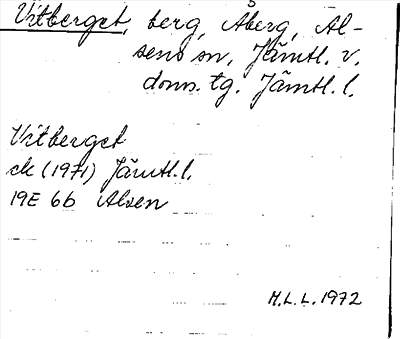 Vitberget, berg, Åberg, Al-
sens sn, Jämtl. v.
doms. tg. Jämtl. l.
Vitberget
ek (1971) Jämtl. l.
19E 6b Alsen
M.L.L. 1972